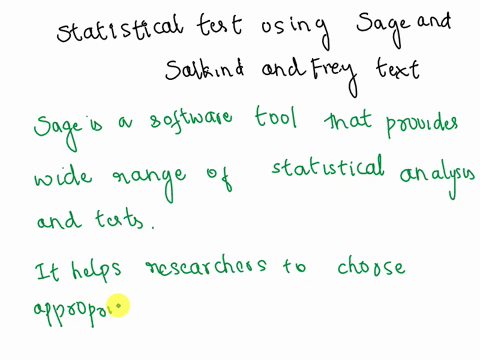 Statistical test using Sage and
Salkind and Frey text
Sage is a software tool that provides
wide range of statistical analysis
and tests.
It helps researchers to choose
appropri